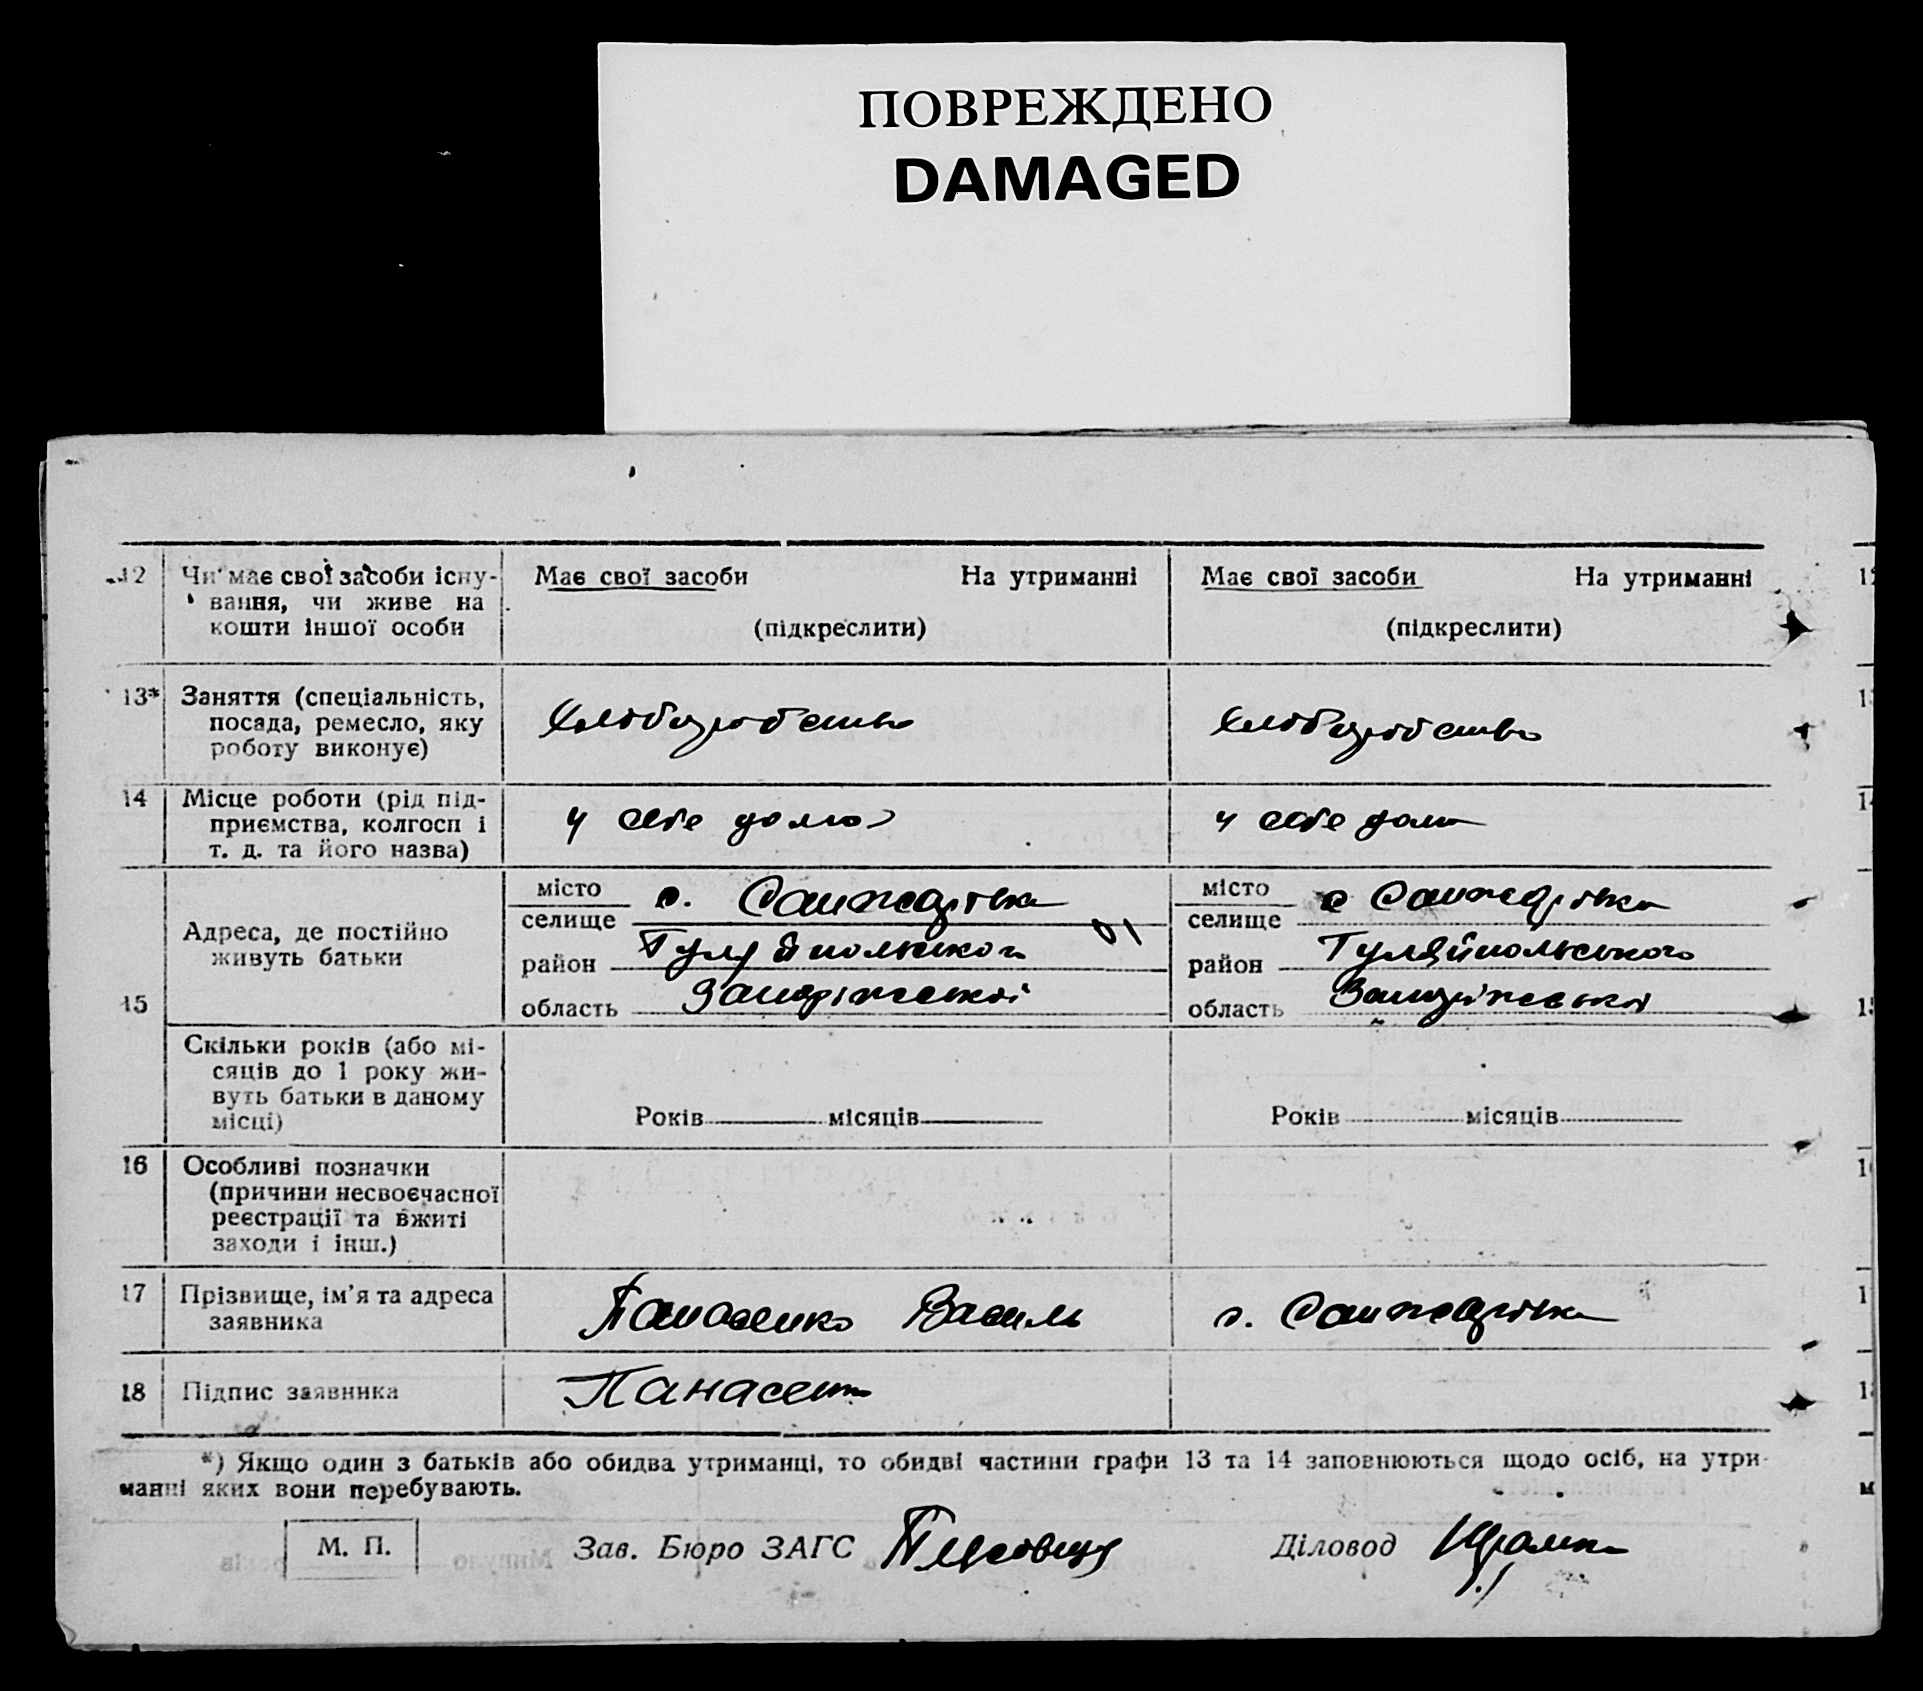 ПОВРЕЖДЕНО
DAMAGED
12 Чи має свої засоби існу-
вання, чи живе на
кошти іншої особи
Має свої засоби На утриманні
(підкреслити)
Має свої засоби На утриманні
(підкреслити)
13* Заняття (спеціальність,
посада, ремесло, яку
роботу виконує)
Хліборобство
Хліборобство
14 Місце роботи (рід під-
приємства, колгосп і
т. д. та його назва)
у себе дома
у себе дома
15
Адреса, де постійно
живуть батьки
місто
селище
с. Санжарівка
район Гуляйпольського
область Запоріжської
місто
селище
с Санжарівка
район Гуляйпольського
область Запоріжської
Скільки років (або мі-
сяців до 1 року жи-
вуть батьки в даному
місці)
Років місяців
Років місяців
16 Особливі позначки
(причини несвоєчасної
реєстрації та вжиті
заходи і інш.)
17 Прізвище, ім'я та адреса
заявника
Панасенко Василь
с. Санжарівка
18 Підпис заявника
Панасенко
*) Якщо один з батьків або обидва утриманці, то обидві частини графи 13 та 14 заповнюються щодо осіб, на утри-
манні яких вони перебувають.
М. П. Зав. Бюро ЗАГС Діловод